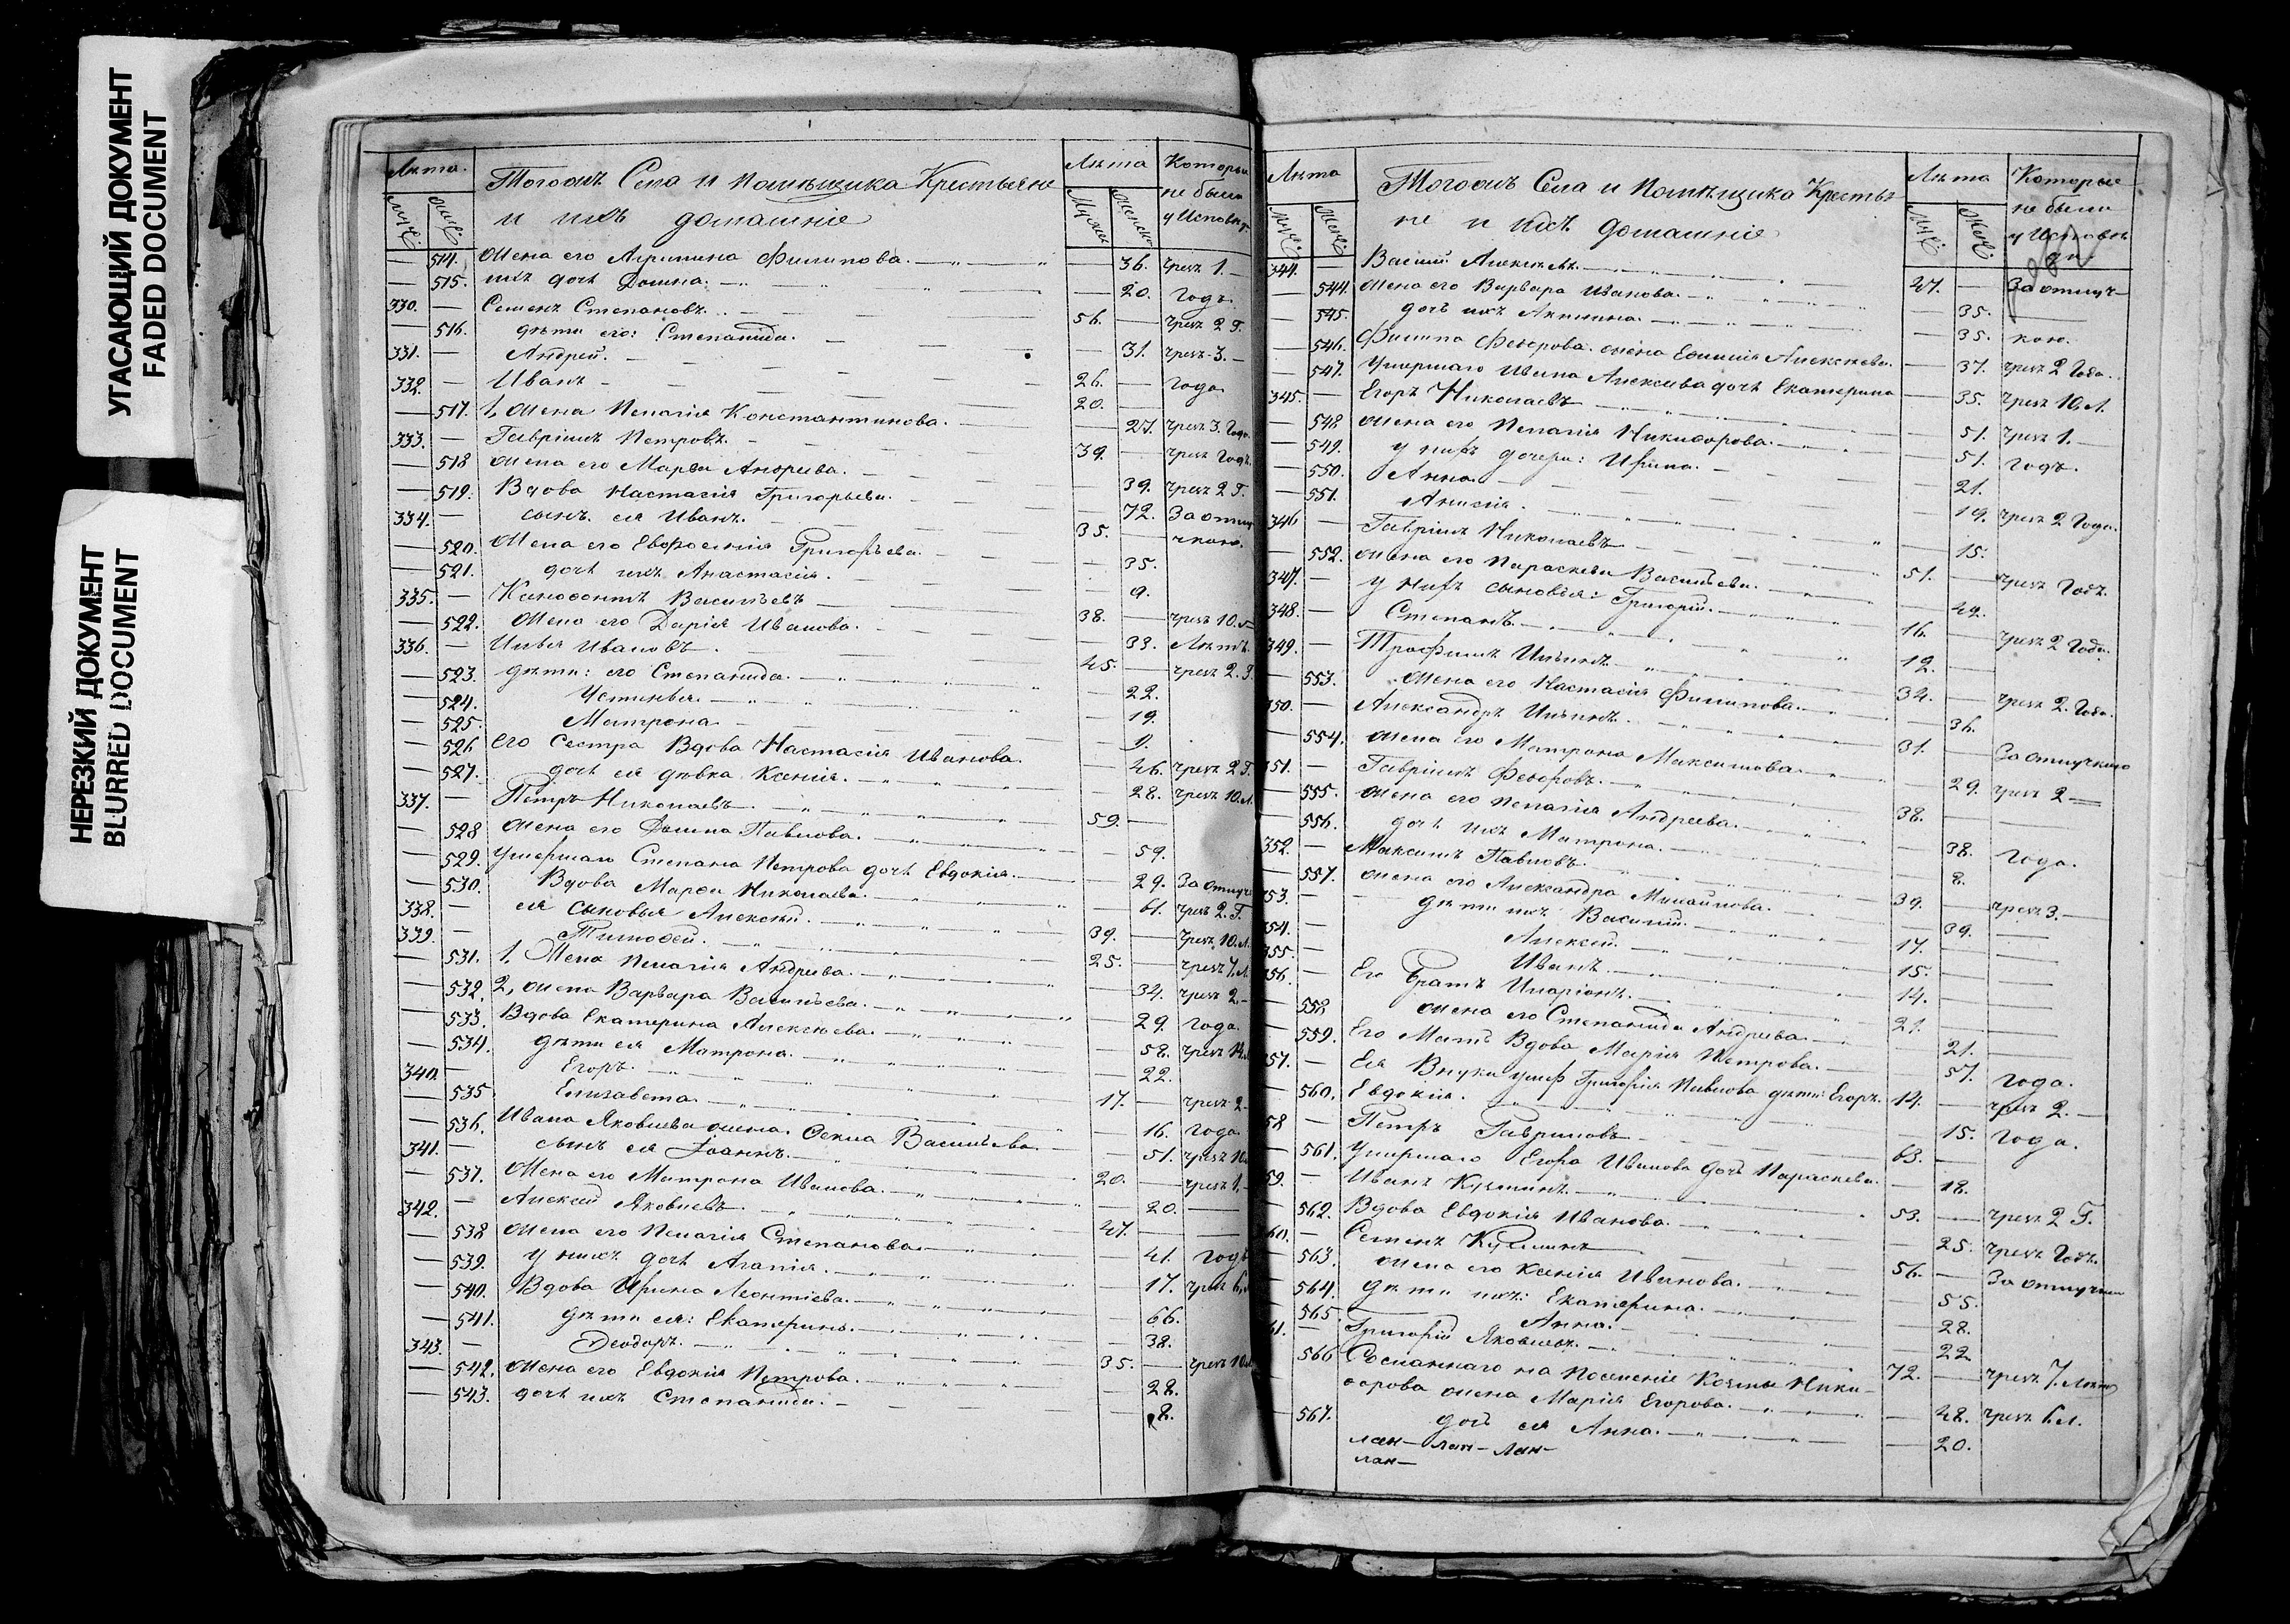 УГАСАЮЩИЙ ДОКУМЕНТ
FADED DOCUMENT
НЕРЕЗКИЙ ДОКУМЕНТ
BLURRED DOCUMENT
Лѣта. Тогожъ Села и помѣщика Крестьяне Лѣта Которые
и ихъ домашніе не были у Исповѣд.
— 514. Жена его Агрипина Филипова. — 36. чрезъ 1.
— 515. ихъ дочь Домна. — 20. Годъ.
330. — Семенъ Степановъ. 56. — чрезъ 2 Г.
— 516. дѣти его: Степанида. — 31. чрезъ 3.
331. — Андрей. 26. — года
332. — Иванъ 20.
— 517. 1, Жена Пелагія Константинова. — 27. чрезъ 3. Года
333. — Гавріилъ Петровъ. 39. — чрезъ Годъ.
— 518 жена его Марѳа Андреева. — 39. чрезъ 2 Г.
— 519. Вдова Настасія Григорьева. — 72. За отлу
334. — сынъ ея Иванъ. 35. — чкою.
— 520. Жена его Евфросинія Григорьева. — 35.
— 521. дочь ихъ Анастасія. — 9.
335. — Ксенофонтъ Васильевъ 38. — чрезъ 10.
— 522. Жена его Дарія Иванова. — 33. Лѣтъ.
336. — Илья Ивановъ 45. — чрезъ 2. Г.
— 523. дѣти: его Степанида. — 22.
— 524. Устинья. — 19.
— 525. Матрона. — 9.
— 526 его Сестра Вдова Настасія Иванова. — 46. чрезъ 2 Г.
— 527. дочь ея дѣвка Ксенія. — 28. чрезъ 10. Л.
337. — Петръ Николаевъ. 59. —
— 528 Жена его Домна Павлова. — 59.
— 529. Умершаго Степана Петрова дочь Евдокія. — 29. За отлуч
— 530. Вдова Марѳа Николаева. — 61. чрезъ 2. Г.
338. — ея сыновья Алексѣй. 39. — чрезъ 10. Л.
339. — Тимоѳей. 25. — чрезъ 7. Л.
— 531. 1, Жена Пелагія Андреева. — 34. чрезъ 2.
— 532. 2, жена Варвара Васильева. — 29. года.
— 533. Вдова Екатерина Алексѣева. — 58. чрезъ
— 534. дѣти ея Матрона. — 22.
340. — Егоръ. 17. — чрезъ 2
— 535 Елизавета. — 16. года
— 536. Ивана Яковлева жена Ѳекла Васильева — 51. чрезъ 10
341. — сынъ ея Іоаннъ. 20. — чрезъ 1,
— 537. Жена его Матрона Иванова. — 20. —
342. — Алексѣй Яковлевъ. 47. —
— 538 Жена его Пелагія Степанова. — 41. годъ
— 539. у нихъ дочь Агапія. — 17. чрезъ 6,
— 540. Вдова Ирина Леонтіева. — 66.
— 541. дѣти ея: Екатерина. — 38.
343. — Ѳеодоръ. 35. — чрезъ 10
— 542. Жена его Евдокія Петрова. — 28.
— 543. дочь ихъ Степанида. — 8.
Лѣта Тогожъ Села и помѣщика Крестья Лѣта Которые
не и ихъ домашніе не были у Исповѣди
344. — Василій Алексѣевъ. 47. — За отлуч
— 544. Жена его Варвара Иванова. — 35.
— 545. дочь ихъ Акилина. — 35. кою.
— 546. Филипа Ѳеодорова жена Евфимія Алексѣева. — 37. чрезъ 2 Года.
— 547. Умершаго Ивана Алексѣева дочь Екатерина — 35. чрезъ 10. Л.
345. — Егоръ Николаевъ 51. чрезъ 1.
— 548 Жена его Пелагія Никифорова. — 51. годъ.
— 549. у нихъ дочери: Ирина. — 21.
— 550. Анна. — 19. чрезъ 2 Года.
— 551. Анисія. — 15.
346 — Гавріилъ Николаевъ 51. — чрезъ Годъ.
— 552. Жена его Параскева Васильева. — 49.
347. — у нихъ сыновья: Григорій. 16. — чрезъ 2 Года.
348. — Степанъ. 12. —
349. — Трофимъ Ильинъ. 34. — чрезъ 2. Года.
— 553. Жена его Настасія Филипова. — 36.
350. — Александръ Ильинъ. 31. — За отлучкою
— 554. Жена его Матрона Максимова. — 29. чрезъ 2
351. — Гавріилъ Ѳеодоровъ. 38. —
— 555. Жена его Пелагія Андреева. — 38. года.
— 556. дочь ихъ Матрона. — 8.
352. — Максимъ Павловъ. 39. — чрезъ 3.
— 557. Жена его Александра Михайлова. — 39. —
353. — дѣти ихъ Василій. 17. —
354. — Алексѣй. 15. —
355. — Иванъ. 14. —
356. — Его братъ Иларіонъ. 21. —
— 558 Жена его Степанида Андреева. — 21. —
— 559. Его Мать Вдова Марія Петрова. — 57. года.
357. — Ея Внуки умер Григорія Павлова дѣти: Егоръ. 14. — чрезъ 2.
— 560. Евдокія. — 15. года.
58 — Петръ Гавриловъ 63. —
— 561. Умершаго Егора Иванова дочь Параскева. — 18.
59. — Иванъ Кузминъ. 53. — чрезъ 2 Г.
— 562. Вдова Евдокія Иванова. — 25. чрезъ Годъ.
60. — Семенъ Кузминъ 56. — За отлучкою
— 563. жена его Ксенія Иванова. — 55.
— 564. дѣти ихъ: Екатерина. — 28.
— 565. Анна. — 22
61. — Григорій Яковлевъ. 72. — чрезъ 7. Лѣтъ
— 566 Сосланнаго на поселеніе Козмы Ники-
форова жена Марія Егорова. — 48. чрезъ 6. Л.
— 567. дочь ея Анна. — 20.